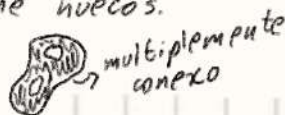 ne huecos.
multiplemente
conexo